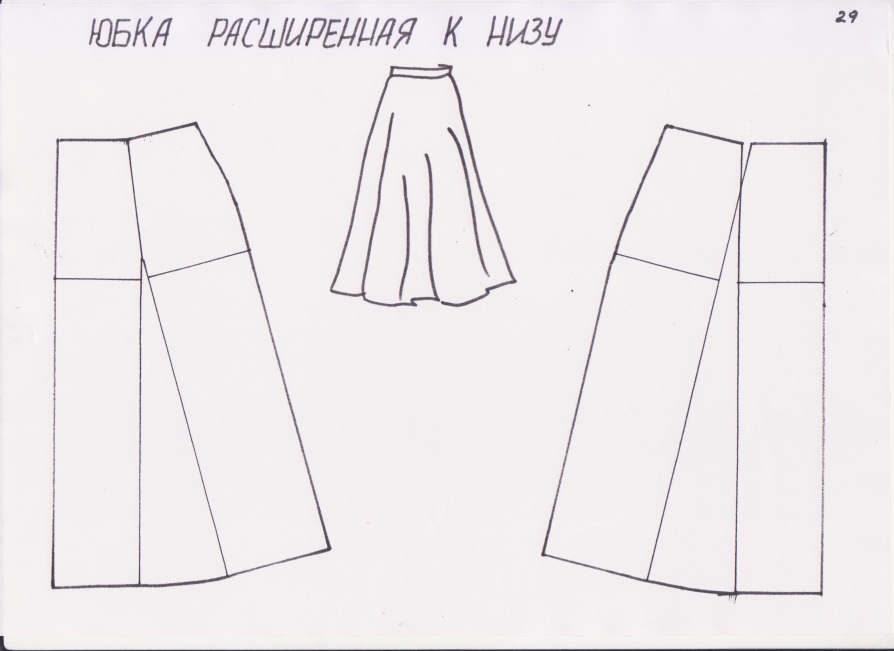 29
ЮБКА РАСШИРЕННАЯ К НИЗУ